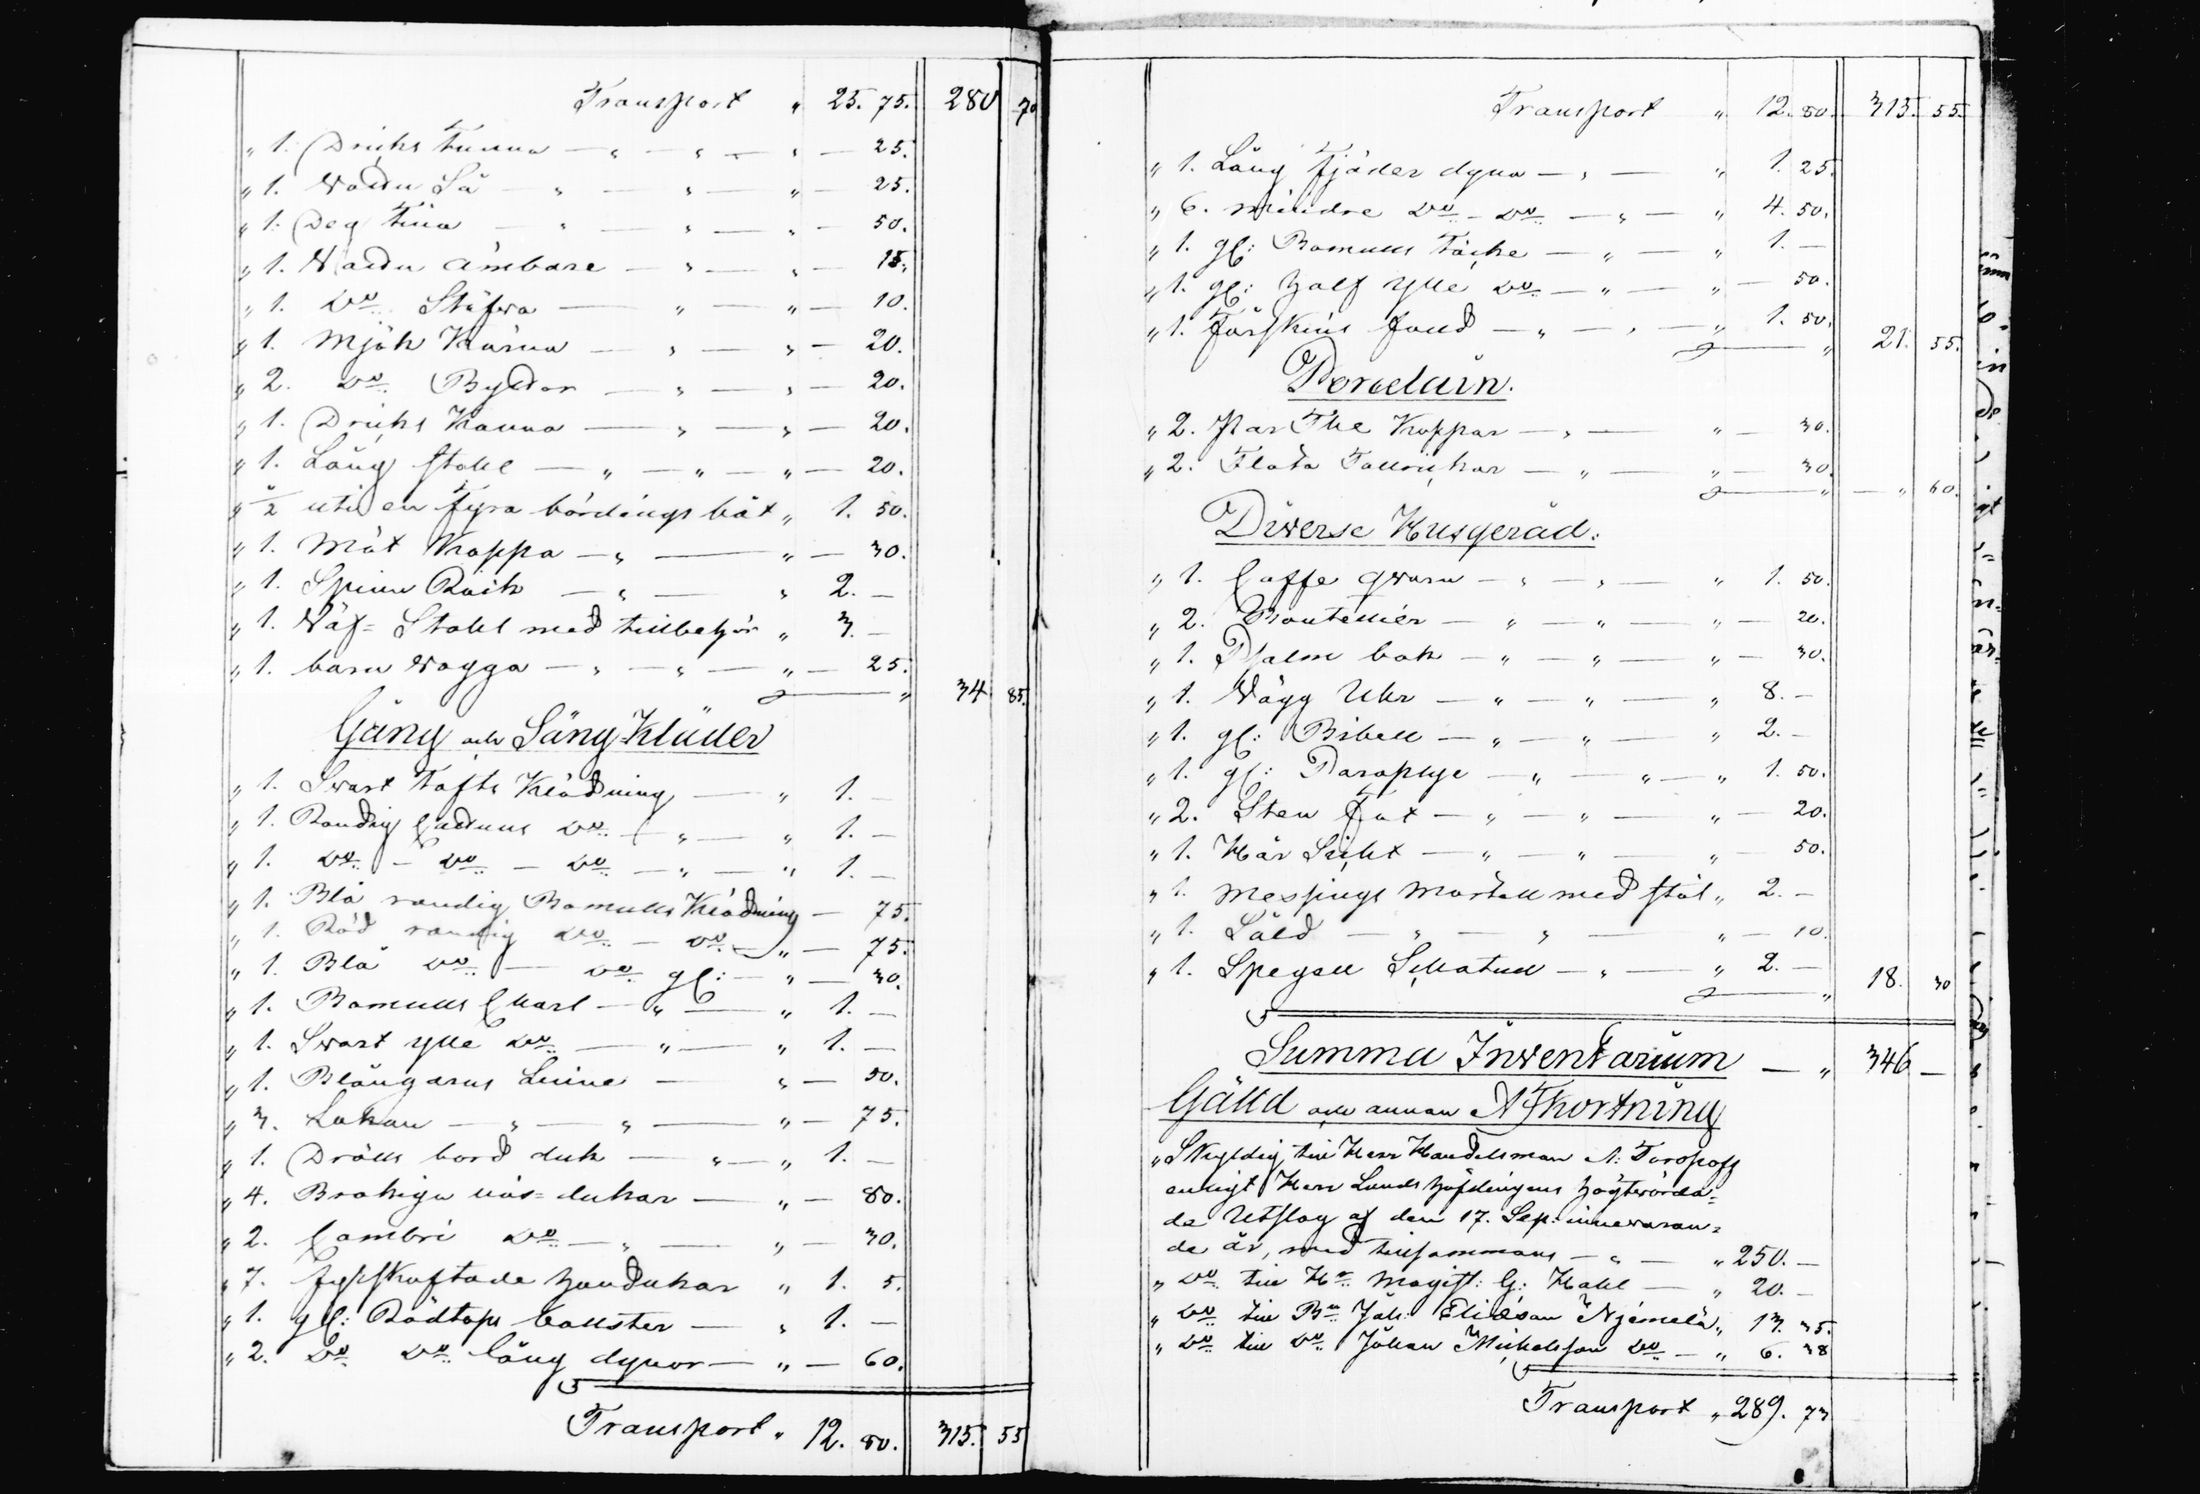 Transport " 25. 75. 280 70
" 1. Dricks Tunna — " — " — " — 25.
" 1. Vattu Så — " — " — " — 25.
" 1. Deg Tina — " — " — " — 50.
" 1. Vattu Ämbare — " — " — 15.
" 1. Do Stäfva — " — " — 10.
" 1. Mjölk Kärna — " — " — 20.
" 2. Do Byttor — " — " — 20.
" 1. Dricks Kanna — " — " — 20.
" 1. Lång stohl — " — " — " — 20.
" ½ uti en fyra bördings båt " 1. 50.
" 1. Mät Kappa — " — " — 30.
" 1. Spinn Råck — " — " 2. —
" 1. Väf= Stohl med tillbehör " 3. —
" 1. barn vagga — " — " — " — 25.
" 34 85.
Gång och Säng Kläder
" 1. Svart Tafts Klädning — " 1. —
" 1. Randig Cattuns Do — " — " 1. —
" 1. Do — Do — Do — " — " 1. —
" 1. Blå randig Bomulls Klädning — 75.
" 1. Röd randig Do — Do — " — 75.
" 1. Blå Do — Do gl: — " — 30.
" 1. Bomulls Charl — " — " 1. —
" 1. Svart ylle Do — " — " 1. —
" 1. Blångarns Linne — " — 50.
" 3. Lakan — " — " — " — 75.
" 1. Drälls bord duk — " — " 1. —
" 4. Brokiga näs=dukar — " — 80.
" 2. Cambri Do — " — " — 30.
" 7. fyrskaftade handukar " 1. 5.
" 1. gl: Rödtops bollster — " 1. —
" 2. Do Do lång dynor — " — 60.
Transport " 12. 80. 315. 55
Transport " 12. 80. 315. 55.
" 1. Lång fjäder dyna — " — " 1. 25.
" 6. mindre Do — Do — " — " 4. 50.
" 1. gl: Bomulls Täcke — " — " 1. —
" 1. gl: half ylle Do — " — " — 50.
" 1. Fårskins fäll — " — " — " 1. 50.
" 21. 55.
Porcelain.
" 2. Par The Koppar — " — " — 30.
" 2. Flata Tallrickar — " — " — 30.
" — " 60.
Diverse Husgeråd:
" 1. Caffe qvarn — " — " — " 1. 50.
" 2. Bouteiller — " — " — " — 20.
" 1. Psalm bok — " — " — " — 30.
" 1. Vägg Uhr — " — " — " 8. —
" 1. gl: Bibell — " — " — " 2. —
" 1. gl: Paraplye — " — " — " 1. 50.
" 2. Sten Fat — " — " — " — 20.
" 1. Hår Sickt — " — " — " — 50.
" 1. Messings Mortell med stöt " 2. —
" 1. Såld — " — " — " — 10.
" 1. Spegell Schatull — " — " 2. —
" 18. 30
Summa Inventarium — " 346 —
Gälld och annan Afkortning
" Skyldig till Herr Handelsman A: Toropoff
enligt Herr Lands höfdingens högtvörda=
de Utslag af den 17. Sep. innevaran=
de år, med tillsammans — " — " 250. —
" Do till Hr Magist: G: Hahl — " 20. —
" Do till Bn Joh: Eliesson Njemelä " 13. 35.
" Do till Do Johan Michelsson Do — " 6. 38
Transport " 289. 73